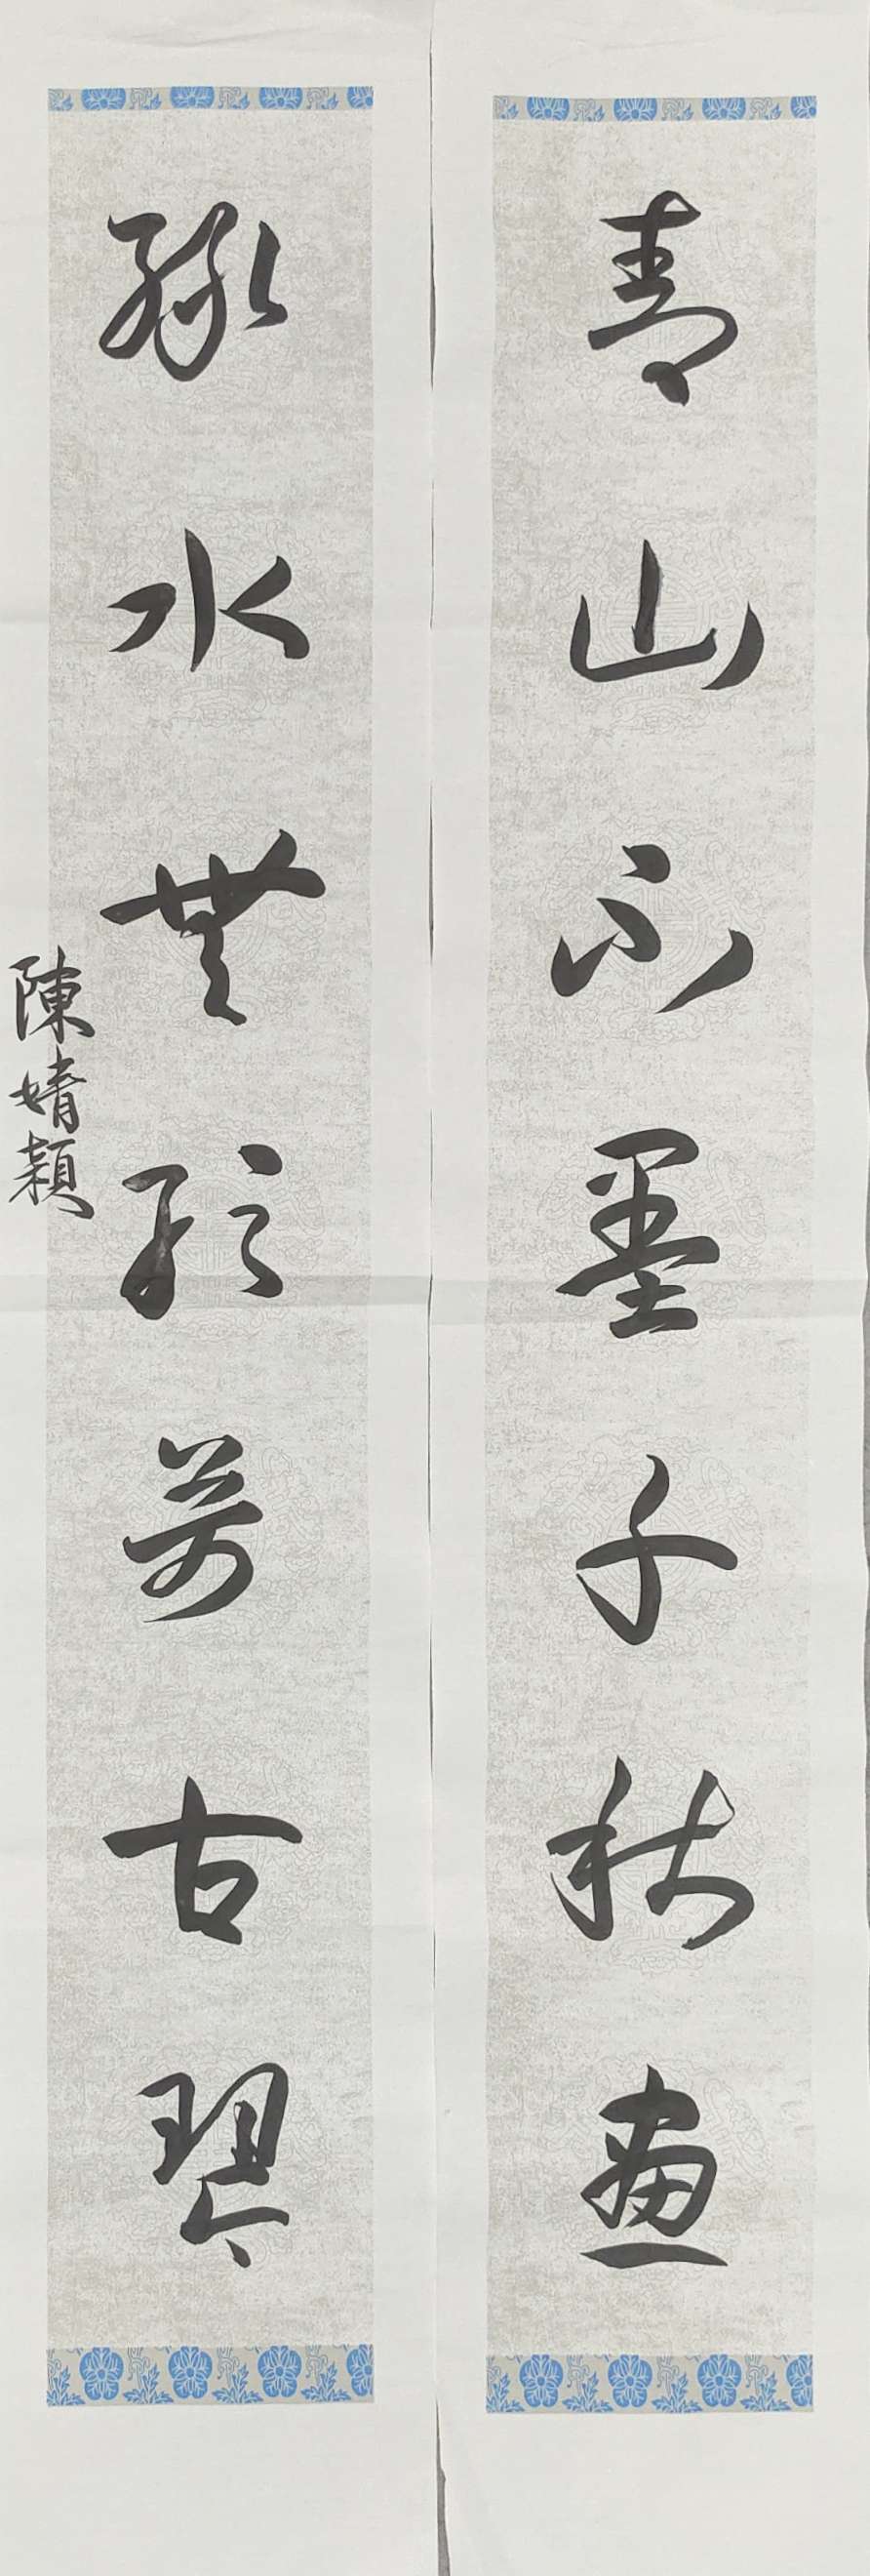 青山不墨千秋畫
綠水無弦萬古琴
陳婧穎